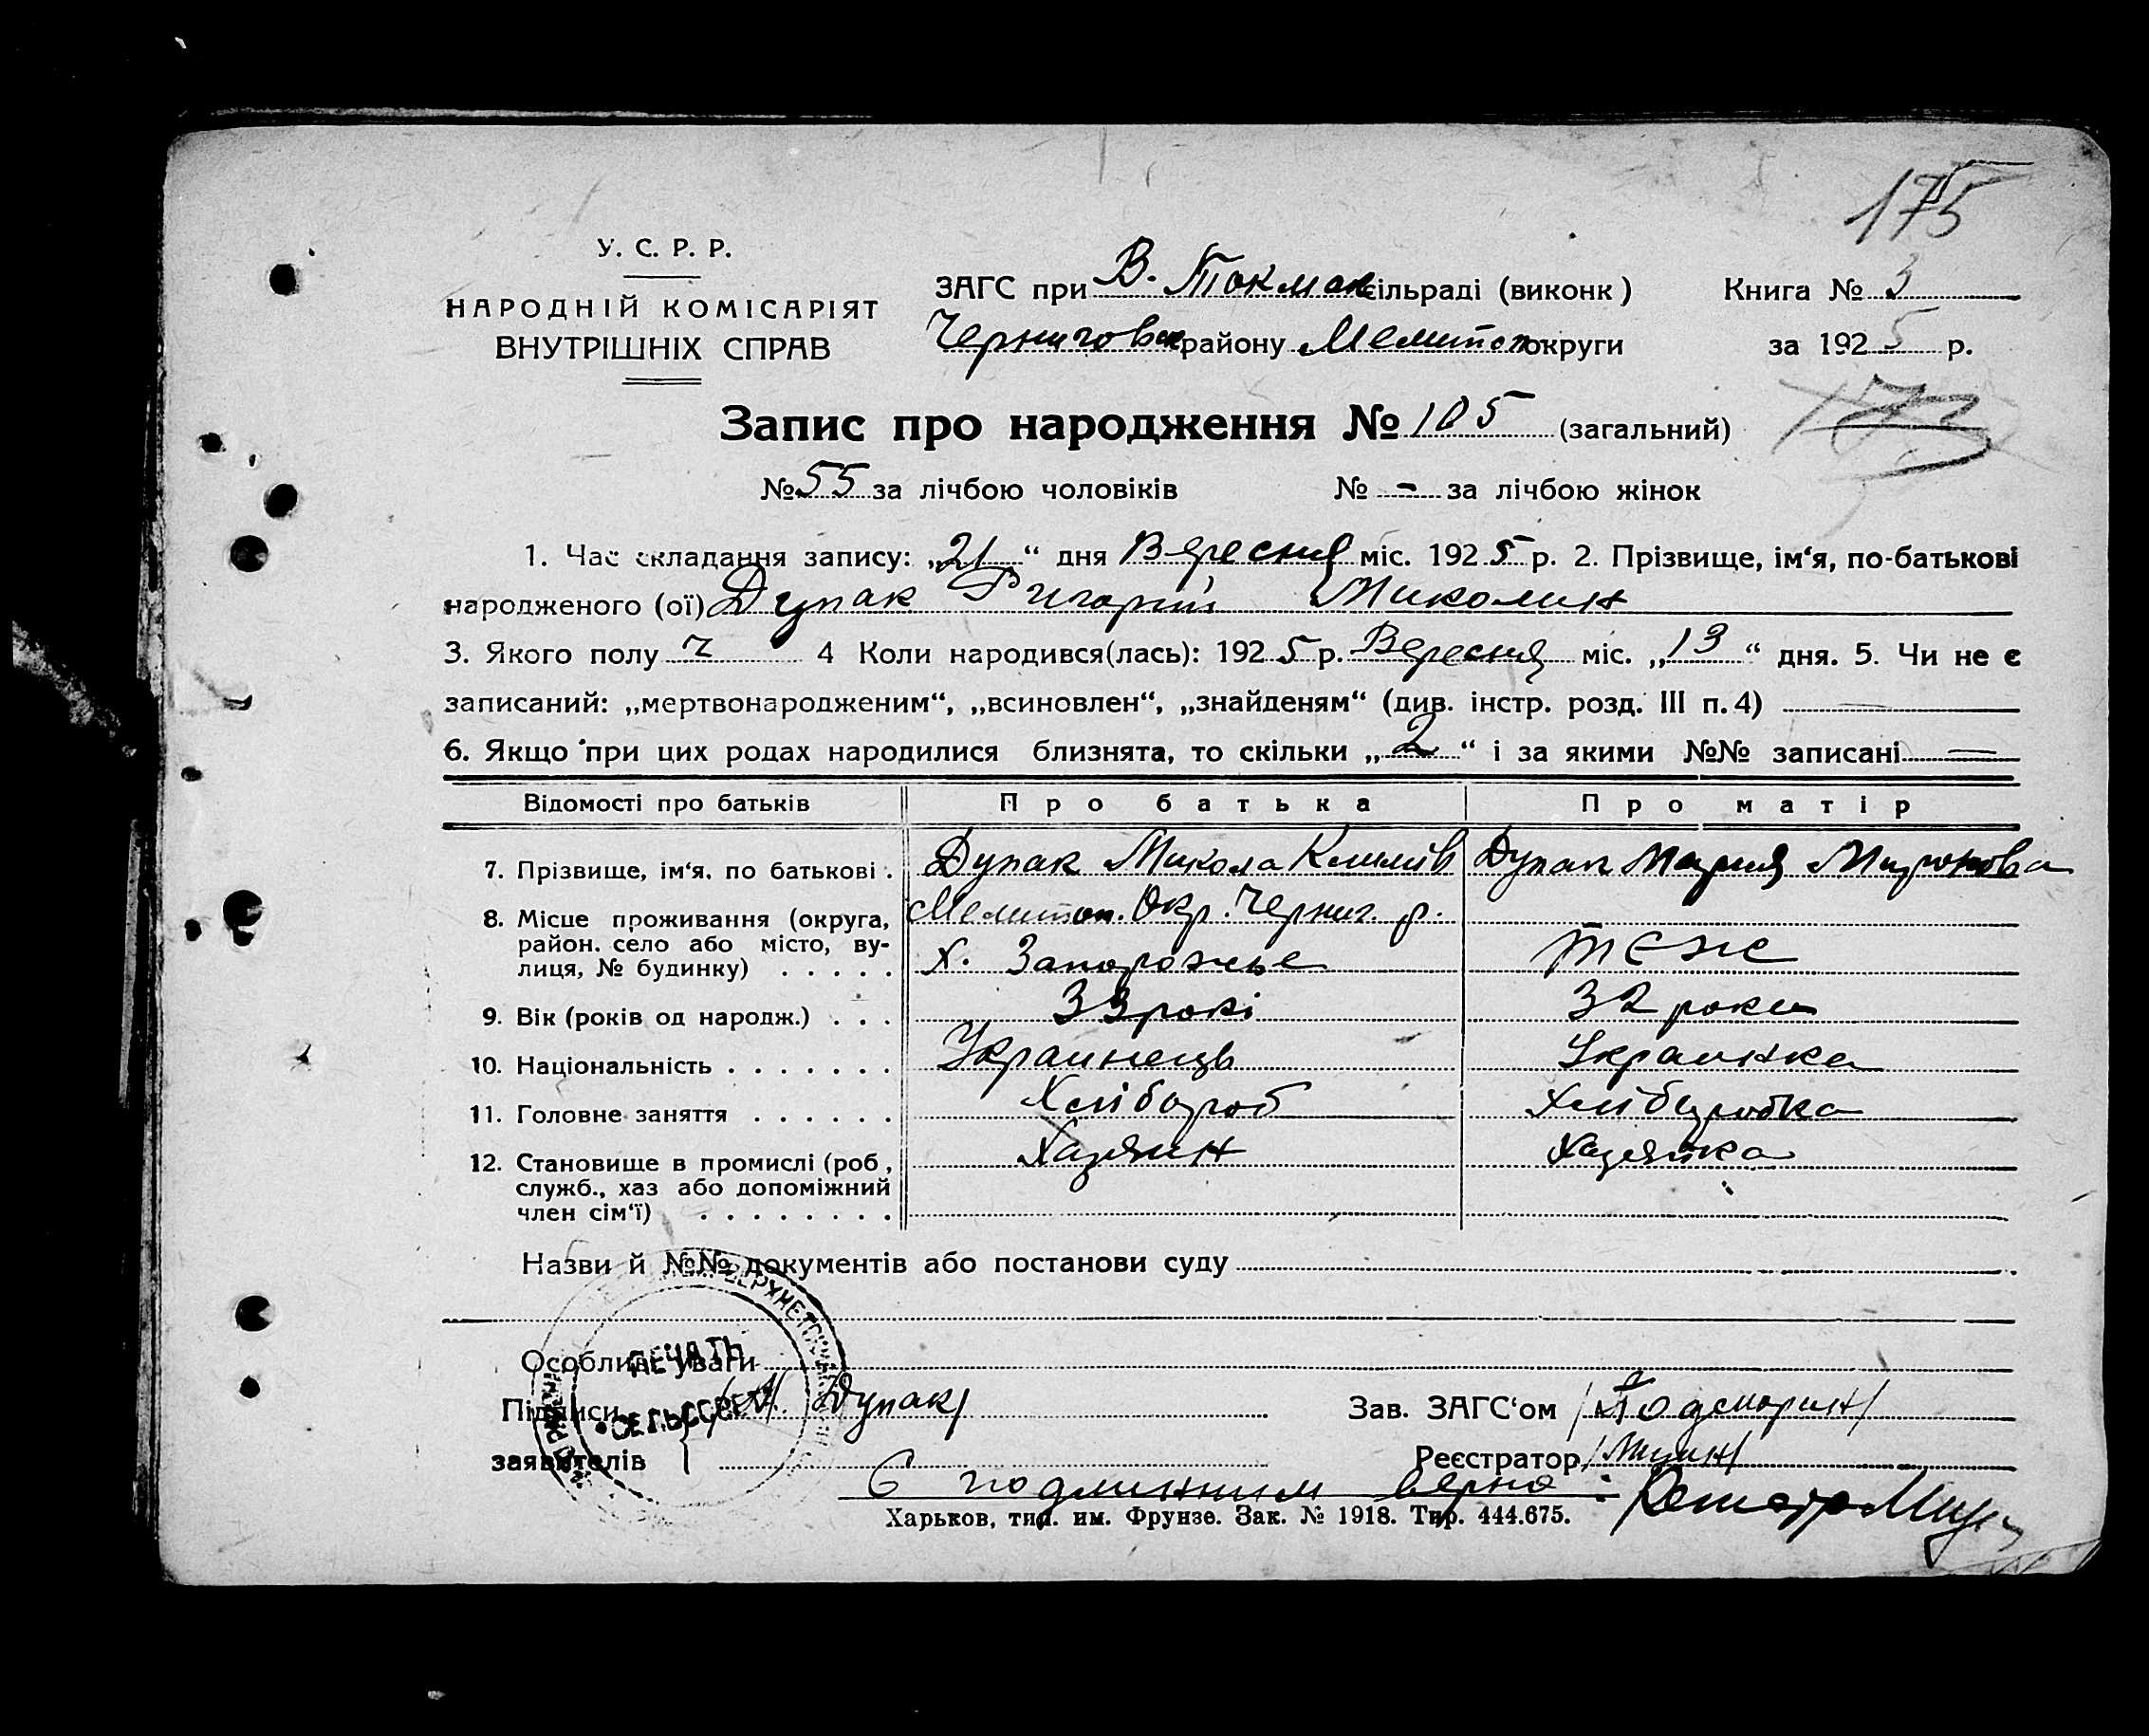 175
У. С. Р. Р.
НАРОДНІЙ КОМІСАРІЯТ
ВНУТРІШНІХ СПРАВ
ЗАГС при В. Токмак сільраді (виконк)
Книга № 3
Черниговск району Мелитоп округи
за 1925 р.
Запис про народження № 105 (загальний)
173
№ 55 за лічбою чоловіків № - за лічбою жінок
1. Час складання запису: „21“ дня Вересня міс. 1925 р. 2. Прізвище, ім‘я, по-батькові
народженого (ої) Дупак Григорій Миколин
3. Якого полу ч 4 Коли народився(лась): 1925 р. Вересня міс. „13“ дня. 5. Чи не є
записаний: „мертвонародженим“, „всиновлен“, „знайденям“ (див. інстр. розд. III п. 4)
6. Якщо при цих родах народилися близнята, то скільки „2“ і за якими №№ записані
Відомості про батьків Про батька Про матір
7. Прізвище, ім‘я. по батькові . Дупак Микола Климів Дупак Мария Миронова
8. Місце проживання (округа, Мелитоп. Окр. Черниг. р.
район. село або місто, ву-
лиця, № будинку) . . . . . х. Запорожье теже
9. Вік (років од народж.) . . . 33 рокі 32 роки
10. Національність . . . . . . . Украинець Украинка
11. Головне заняття . . . . . . Хлібороб Хліборобка
12. Становище в промислі (роб, Хазяин Хазяйка
служб., хаз або допоміжний
член сім‘ї) . . . . . . . .
Назви й №№ документів або постанови суду
Особливі уваги
ПЕЧАТЬ
СЕЛЬСОВЕТА
Підписи
заявителів
Дупак/
Зав. ЗАГС‘ом
Реєстратор
С подлинним верно:
Харьков, тип. им. Фрунзе. Зак. № 1918. Тир. 444.675.